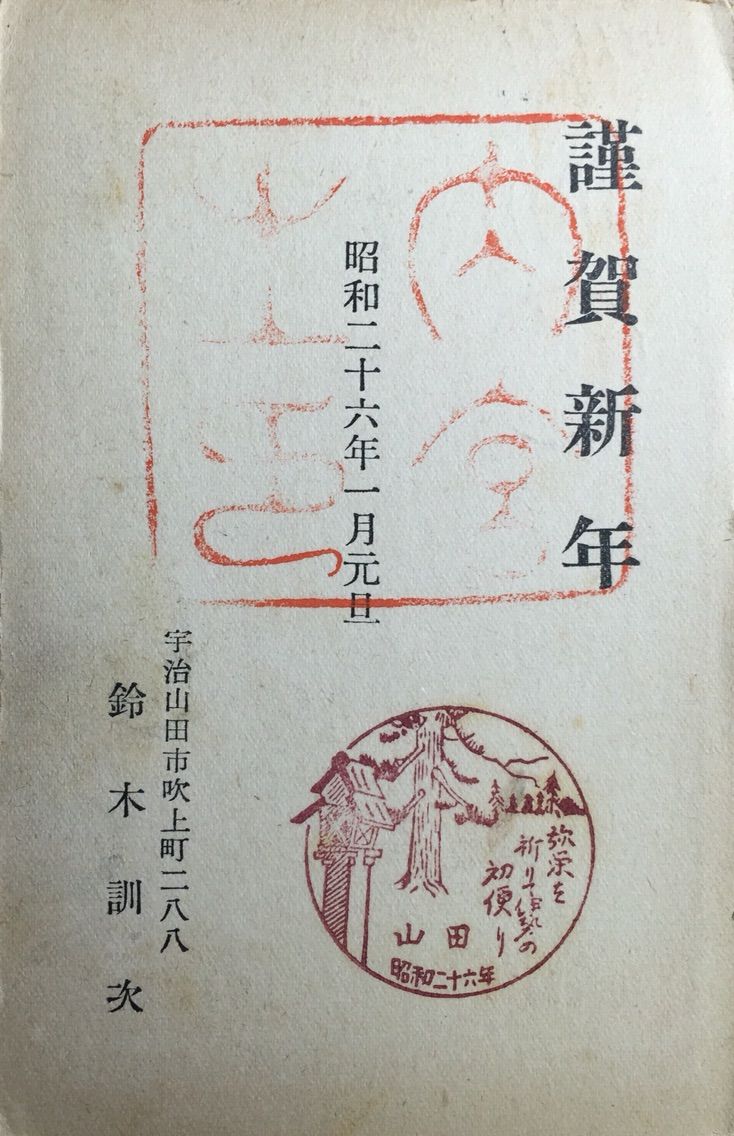 謹賀新年
昭和二十六年一月元旦
宇治山田市吹上町二八八
鈴木訓次
弥栄を
祈りて伊勢の
初便り
山田
昭和二十六年